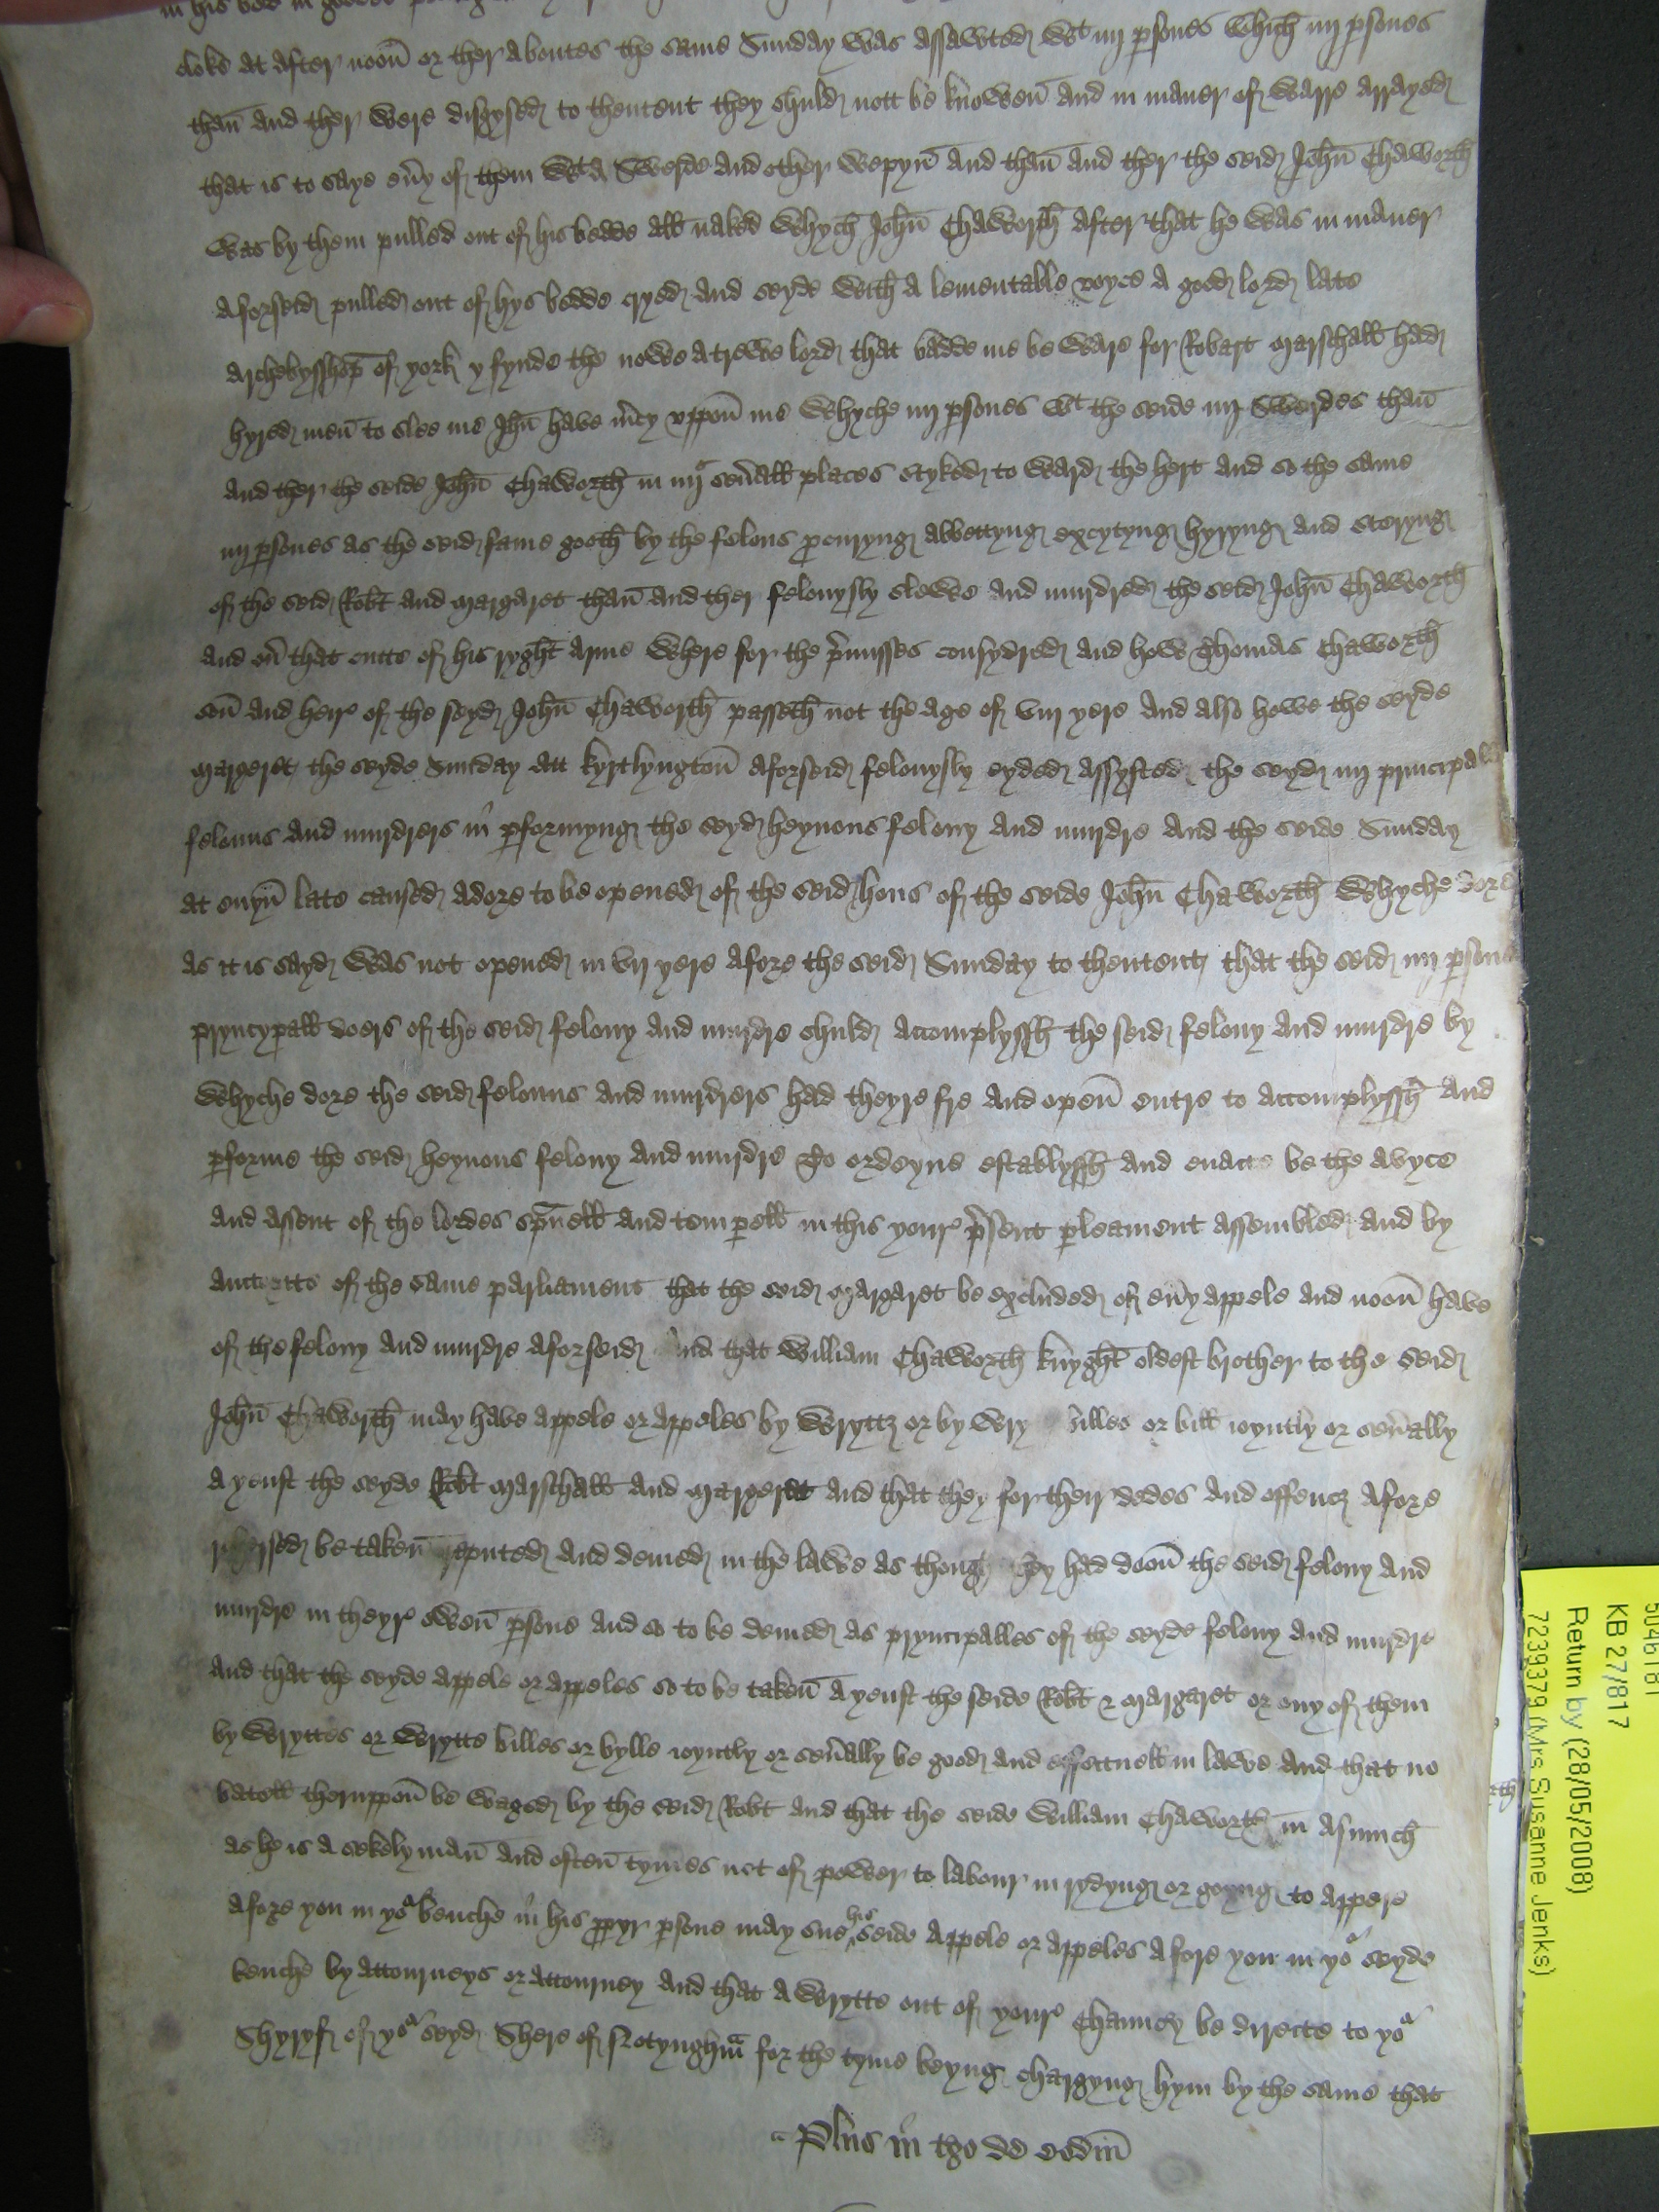 in his bed in goodes
cloke at after noon̄ or ther aboutes the same Sunday was assawted wt iiij psones which iiij psones
than̄ and ther were disgysed to thentent they shuld nott be knowen̄ and in maner of warre arrayed
that is to saye eūy of them wt a Swerde and other wepyn̄ and than̄ and ther the seid John̄ Chaworth
was by them pulled out of his bedde all naked whych John̄ Chaworth after that he was in maner
aforseid pulled out of hys bedde cryed and seyde with a lementable voyce a good lord late
archebysshop of york y fynde the nowe a trewe lord that badde me be ware for Robart Marschall had
hyred men̄ to slee me Jhū have m̄cy uppon̄ me whyche iiij psones wt the seide iiij Swerdes than̄
and ther the seide John̄ Chaworth in iiij seūall places styked to ward the hert and so the same
iiij psones as the seid fame goeth by the felons pcuryng abbettyng excytyng hyryng and steryng
of the seid Robt and Margaret than̄ and ther felonysly slewe and murdred the seid John̄ Chaworth
and on̄ that cutte of his ryght arme Where for the p̄misses consydred and how Thomas Chaworth
son̄ and heire of the seyd John̄ Chaworth passeth not the age of viij yere and also howe the seyde
Margeret the seyde Sunday att kyrtlyngton̄ aforseid felonysly eyded assysted the seyd iiij principall
felouns and murdrers in pformyng the seyd heynous felony and murdre and the seide Sunday
at euyn̄ late caused a dore to be opened of the seid hous of the seide John̄ Chaworth whyche dore
as it is sayd was not opened in vij yere afore the seid Sunday to thentent that the seid iiij psones
pryncypall doers of the seid felony and murdre shuld accomplyssh the seid felony and murdre by
whyche dore the seid felouns and murdrers had theyre fre and open̄ entre to accomplyssh and
pforme the seid heynous felony and murdre To ordeyne establyssh and enacte be the avyce
and assent of the lordes spūell and tempell in this your p̄sent pleament assembled and by
auctorite of the same parliament that the seid Margaret be excluded of eūy appele and noon̄ have
of the felony and murdre aforseid And that William Chaworth knyght oldest brother to the seid
John̄ Chaworth may have appele or appeles by wrytts or by wry billes or bill ioyntly or seūally
a yenst the seyde Robt Marschall and Margeret and that they for their dedes and offencs afore
rehersed be taken̄ reputed and demed in the lawe as though they had doon̄ the seid felony and
murdre in theyr owen̄ psone and so to be demed as pryncipalles of the seyde felony and murdre
and that the seyde appele or appeles so to be taken̄ a yenst the seide Robt & Margaret or eny of them
by wryttes or wrytte billes or bylle ioyntly or seūally be good and effectuell in lawe and that no
batell theruppon̄ be waged by the seid Robt and that the seide William Chaworth in asmuch
as he is a sekely man̄ and often̄ tymes not of power to labour in rydyng or goyng to appere
afore you in yor benche in his ppyr psone may sue his seide appele or appeles afore you in yor seyde
benche by attourneys or attourney and that a wrytte out of your Chauncy be directe to yor
Shyryf of yor seyd Shere of Notynghm̄ for the tyme beyng chargyng hym by the same that
Plus in tgo de eodm̄
5046181
KB 27/817
Return by (28/05/2008)
7239379 (Mrs Susanne Jenks)